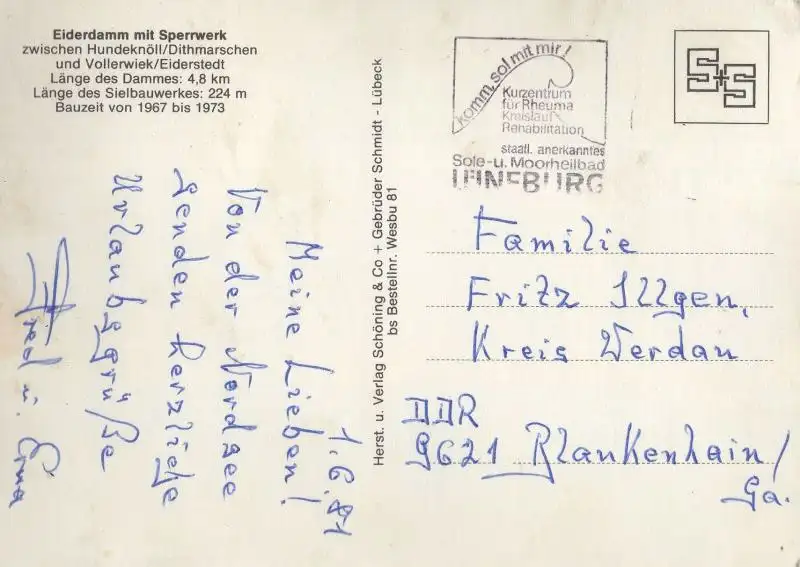 Eiderdamm mit Sperrwerk
zwischen Hundeknöll/Dithmarschen
und Vollerwiek/Eiderstedt
Länge des Dammes: 4,8 km
Länge des Sielbauwerkes: 224 m
Bauzeit von 1967 bis 1973
1.6.81
Meine Lieben!
Von der Nordsee
senden herzliche
Urlaubsgrüße
Fred u. Erna
Herst. u. Verlag Schöning & Co + Gebrüder Schmidt - Lübeck
bs Bestellnr. Wesbu 81
komm, sol mit mir!
Kurzentrum
für Rheuma
Kreislauf
Rehabilitation
staatl. anerkanntes
Sole-u. Moorheilbad
LÜNEBURG
S+S
Familie
Fritz Illgen,
Kreis Werdau
DDR
9621 Blankenhain/
Ga.